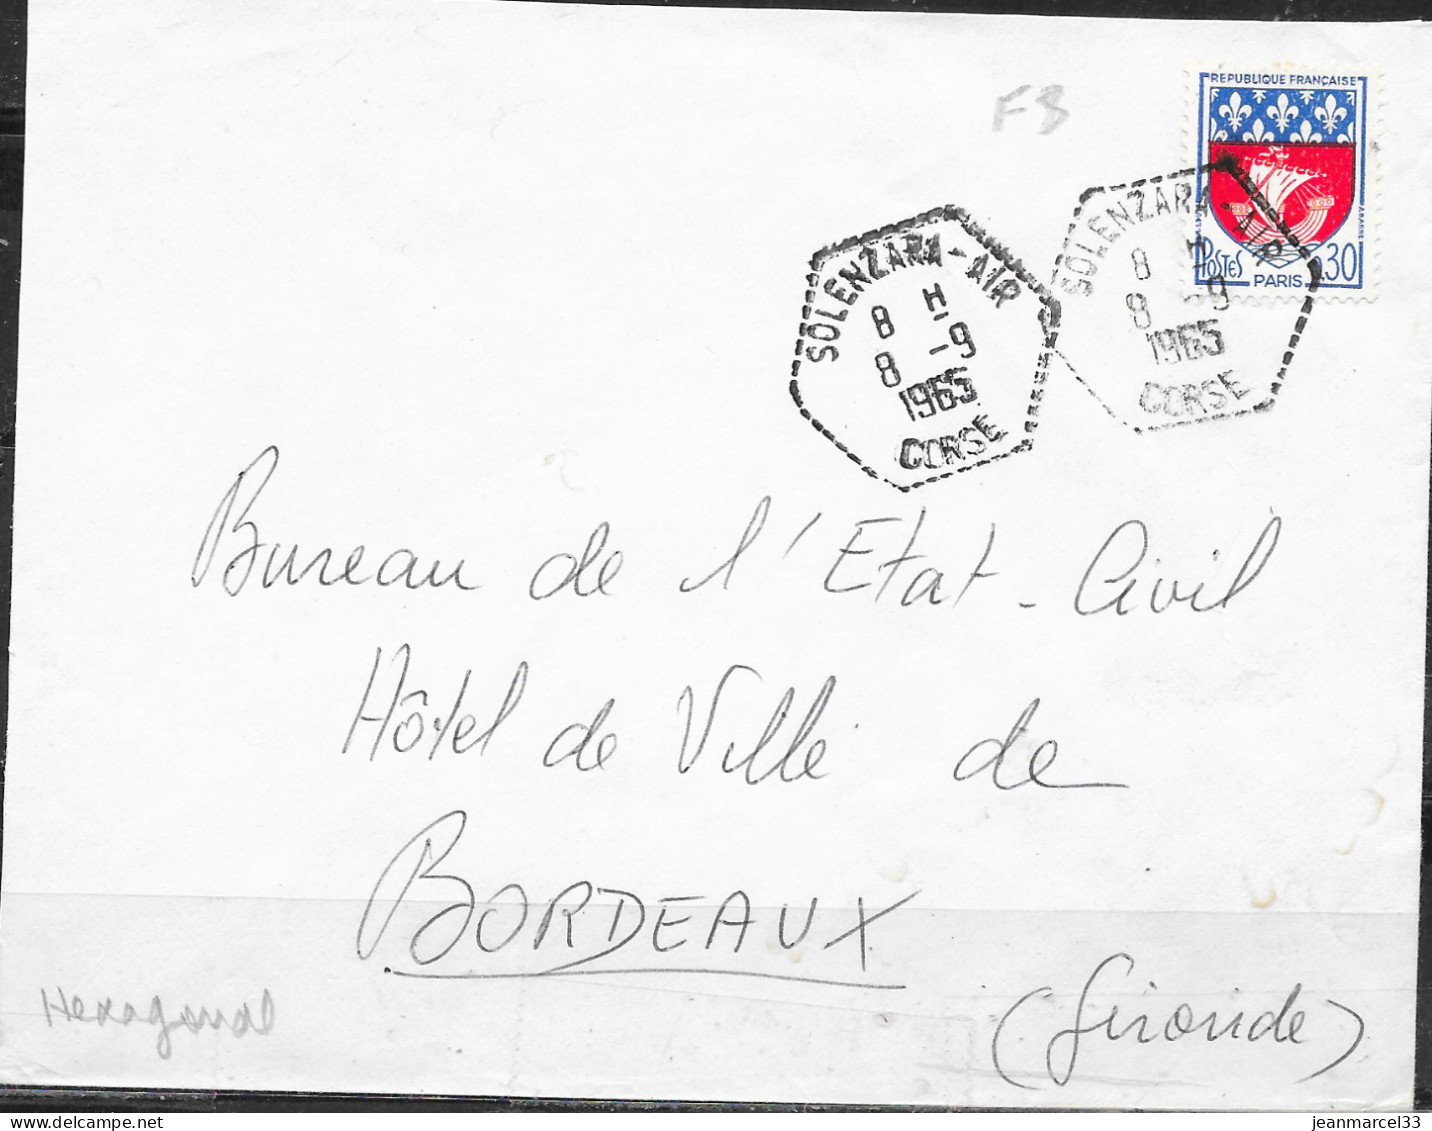 F8
REPUBLIQUE FRANÇAISE
POSTES PARIS 0.30
SOLENZARA-AIR
8 H
8 -9
1965
CORSE
SOLENZARA-AIR
8 H
8 -9
1965
CORSE
Bureau de l'Etat-Civil
Hôtel de Ville de
BORDEAUX
(Gironde)
Hexagonal
jeanmarcel33